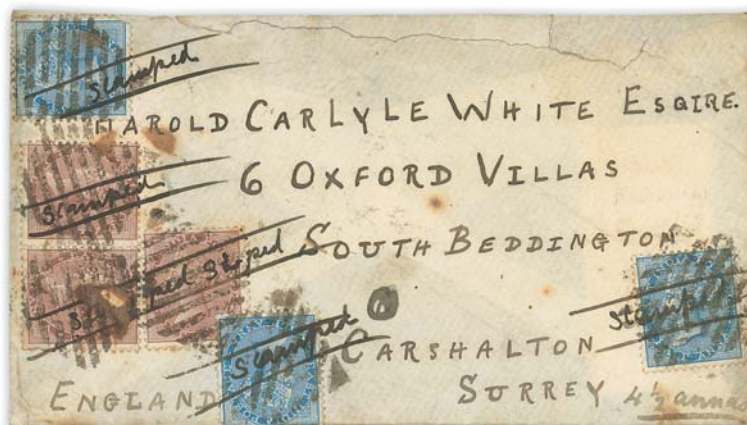 Stamped
HAROLD CARLYLE WHITE ESQIRE.
Stamped
6 OXFORD VILLAS
SOUTH BEDDINGTON
Stamped
Stamped
CARSHALTON
ENGLAND
SURREY 4½ annas